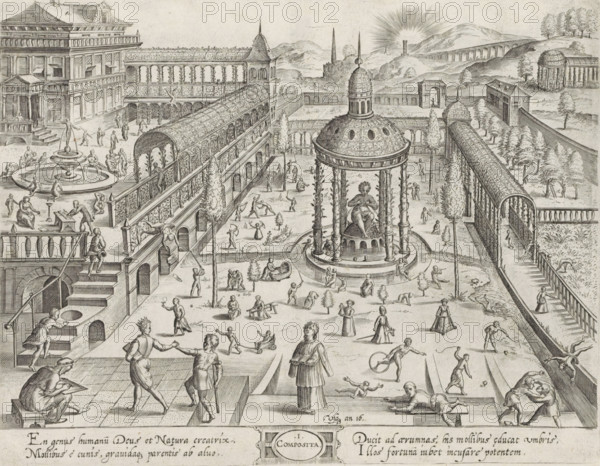 PHOTO12
an 16.
En genus humanū Deus et Natura creatrix
Mollibus è cunis, gravidaq, parentis ab aluo.
I.
COMPOSITA
Ducit ad ærumnas, mollibus educat vmbris.
Illos fortuna iubet incusare potentem.